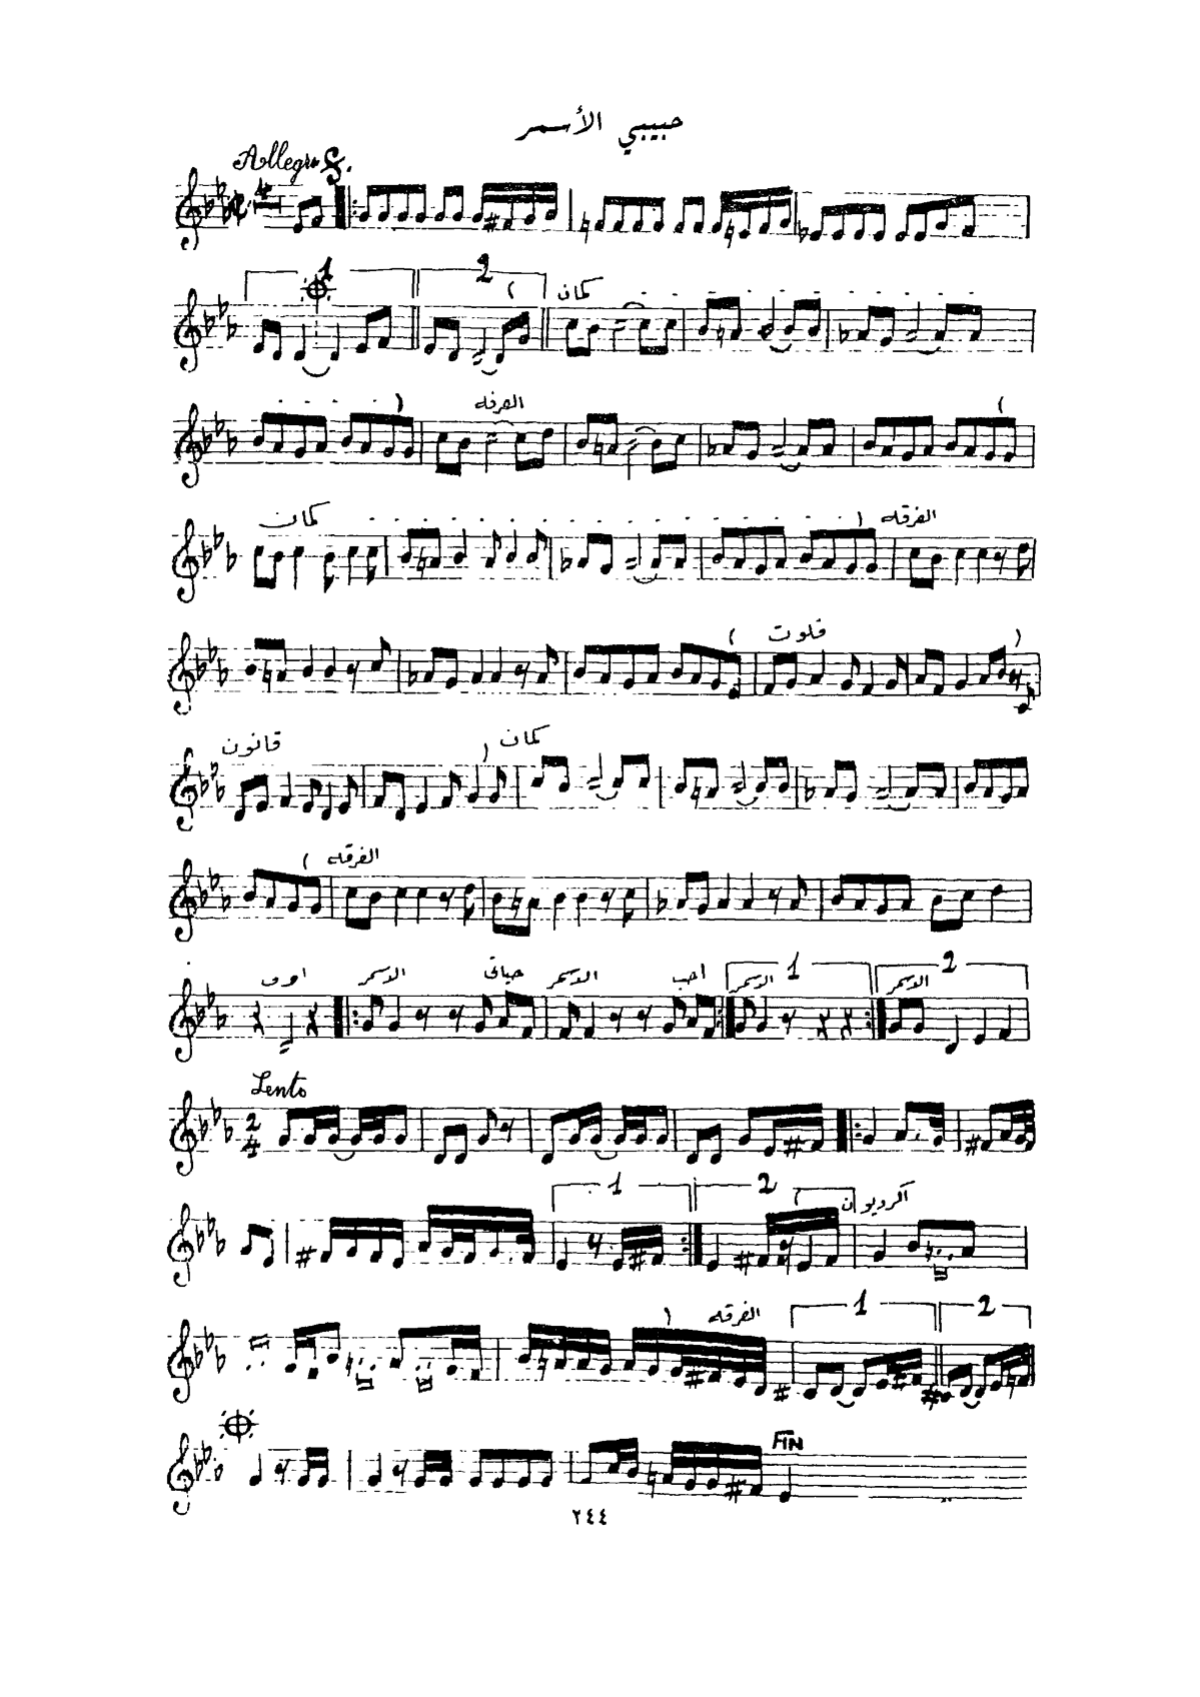 حبيبي الأسمر
Allegro
4
1 2
كمان
الفرقه
كمان الفرقه
فلوت
قانون كمان
الفرقه
اوف الاسمر حياتي الاسمر احب الاسمر 1 الاسمر 2
Lento
2
4
1 2 اكرديون
الفرقه 1 2
FIN
٢٤٤